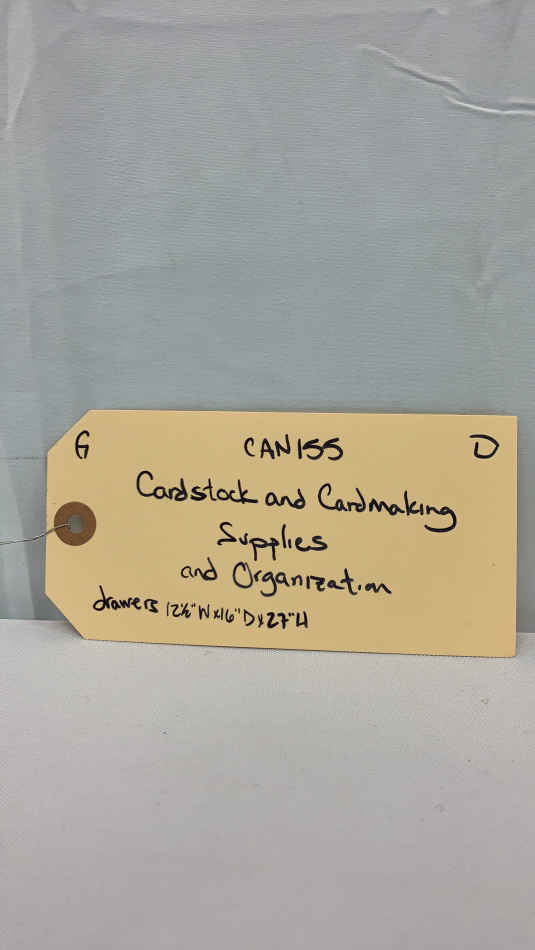 G CAN155 D
Cardstock and Cardmaking
Supplies
and Organization
drawers 12½"W x 16"D x 27"H